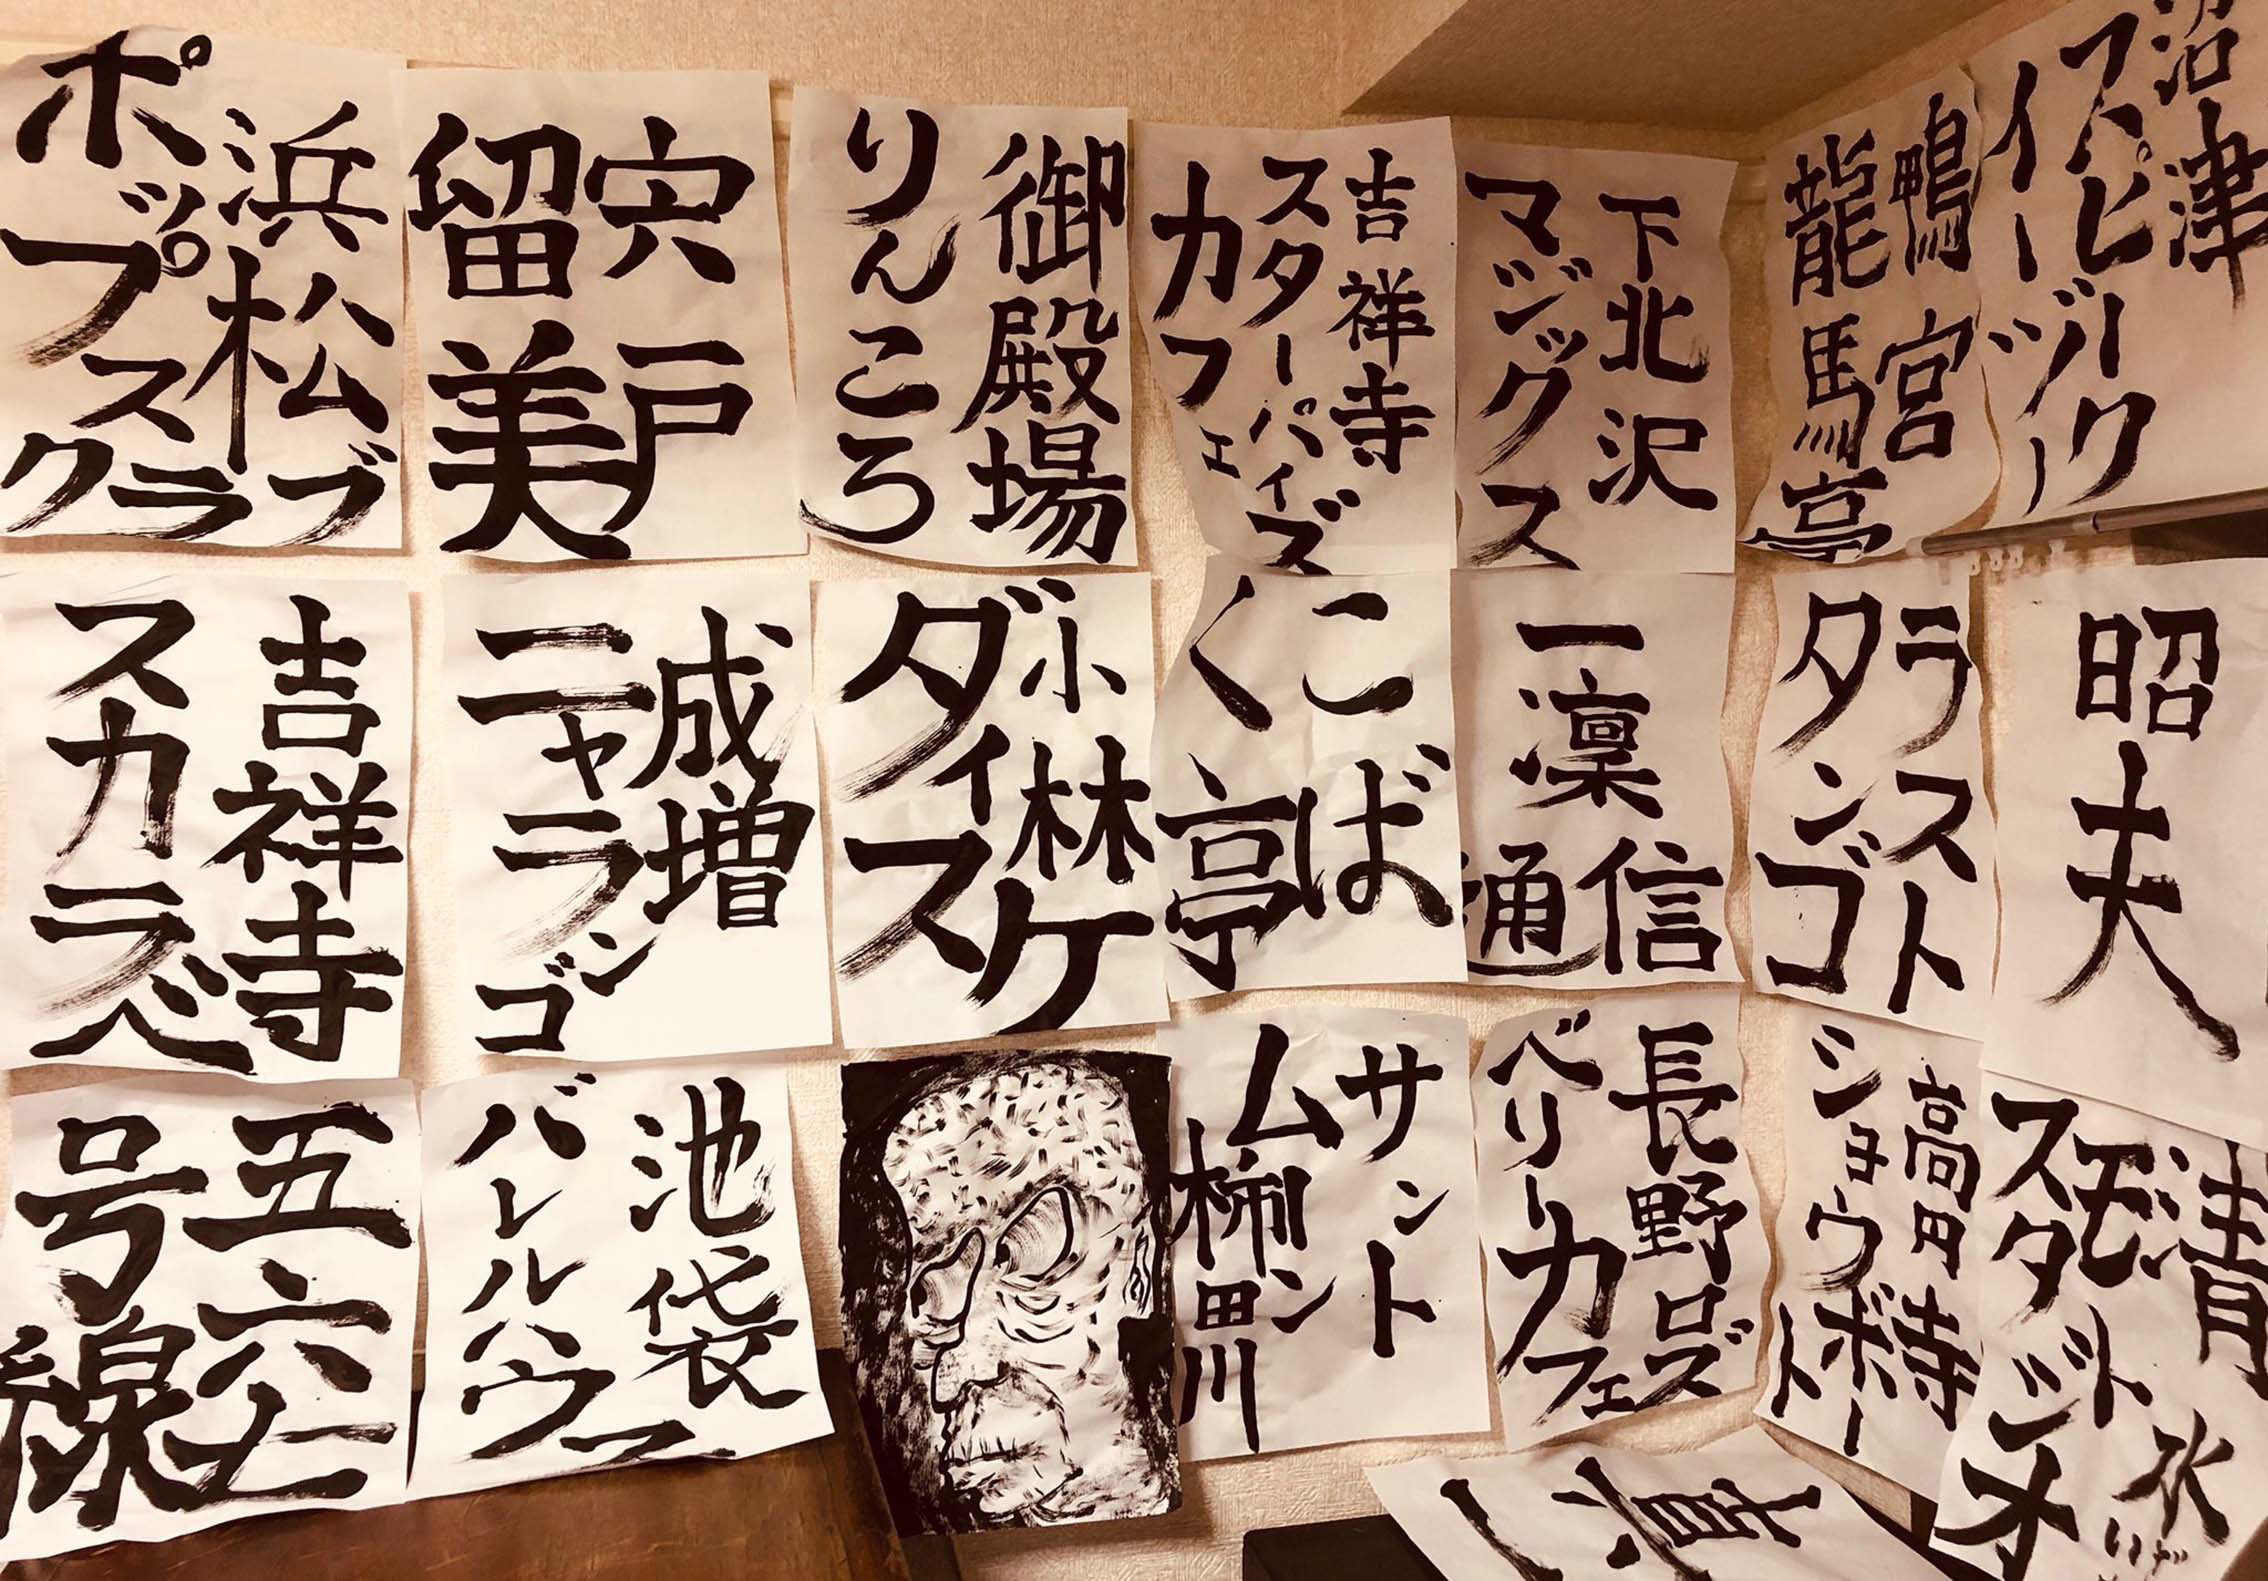 浜松
ポップス
クラブ
宍戸
留美
御殿場
りんころ
吉祥寺
スターパイズ
カフェ
下北沢
マジックス
鴨宮
龍馬亭
沼津
スピーク
イージー
吉祥寺
スカラベ
成増
ニャランゴ
小林
ダイ
スケ
こば
く亭
一凛
通信
ラスト
タンゴ
昭夫
五六七
号線
池袋
バレルハウス
サント
ムーン
柿田川
長野ロズ
ベリーカフェ
高円寺
ショウボート
清水
スタジオ